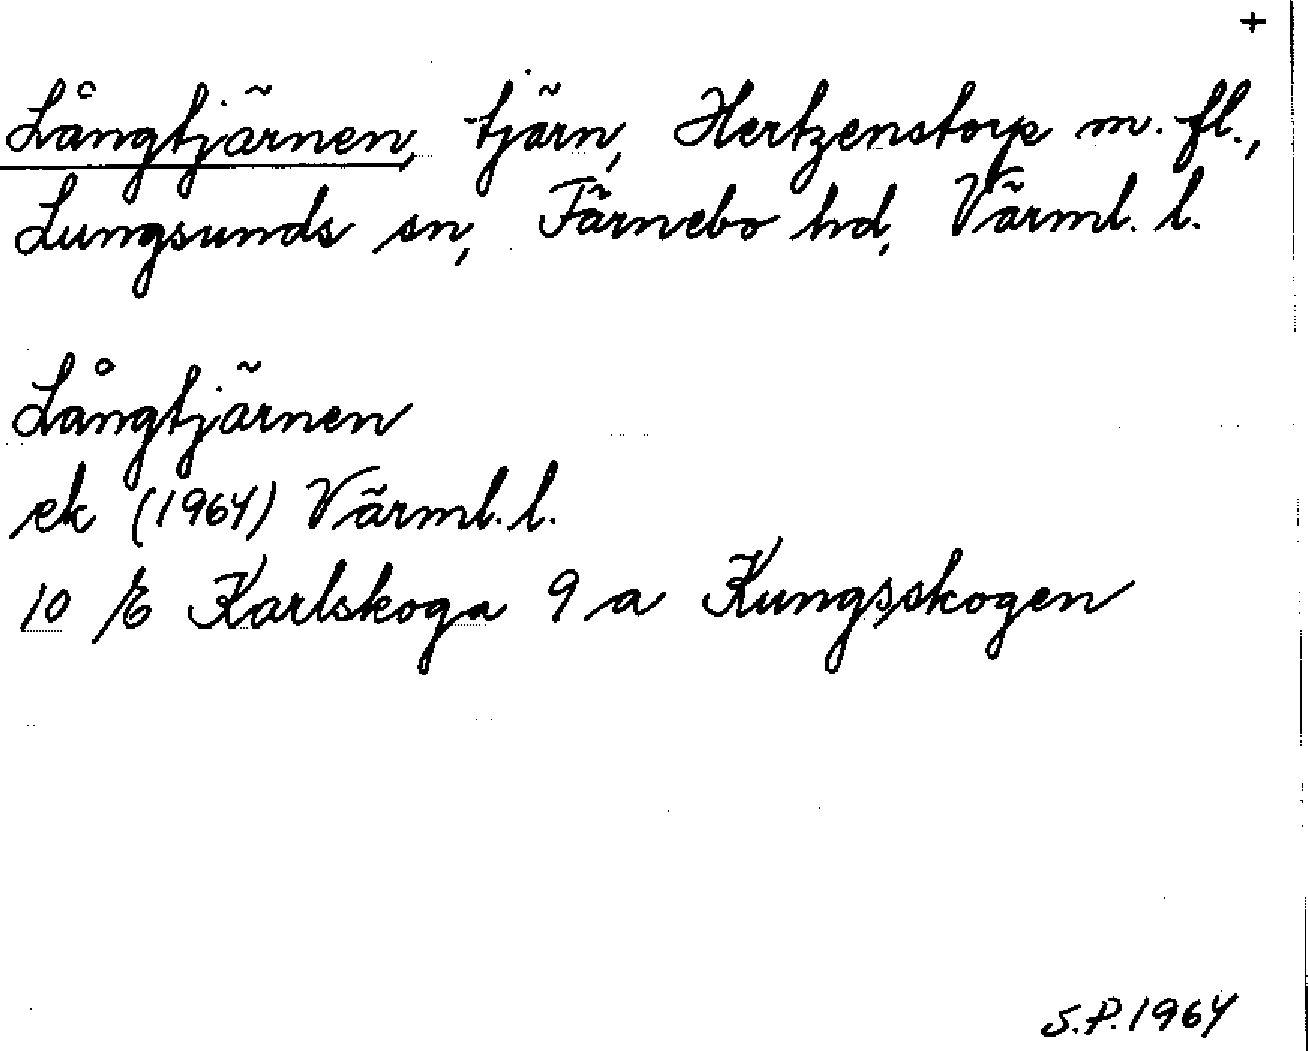 +
Långtjärnen, tjärn, Hertzenstorp m. fl.,
Lungsunds sn, Färnebo hd, Värml. l.
Långtjärnen
ek (1964) Värml. l.
10 E Karlskoga 9 a Kungsskogen
S.P. 1964